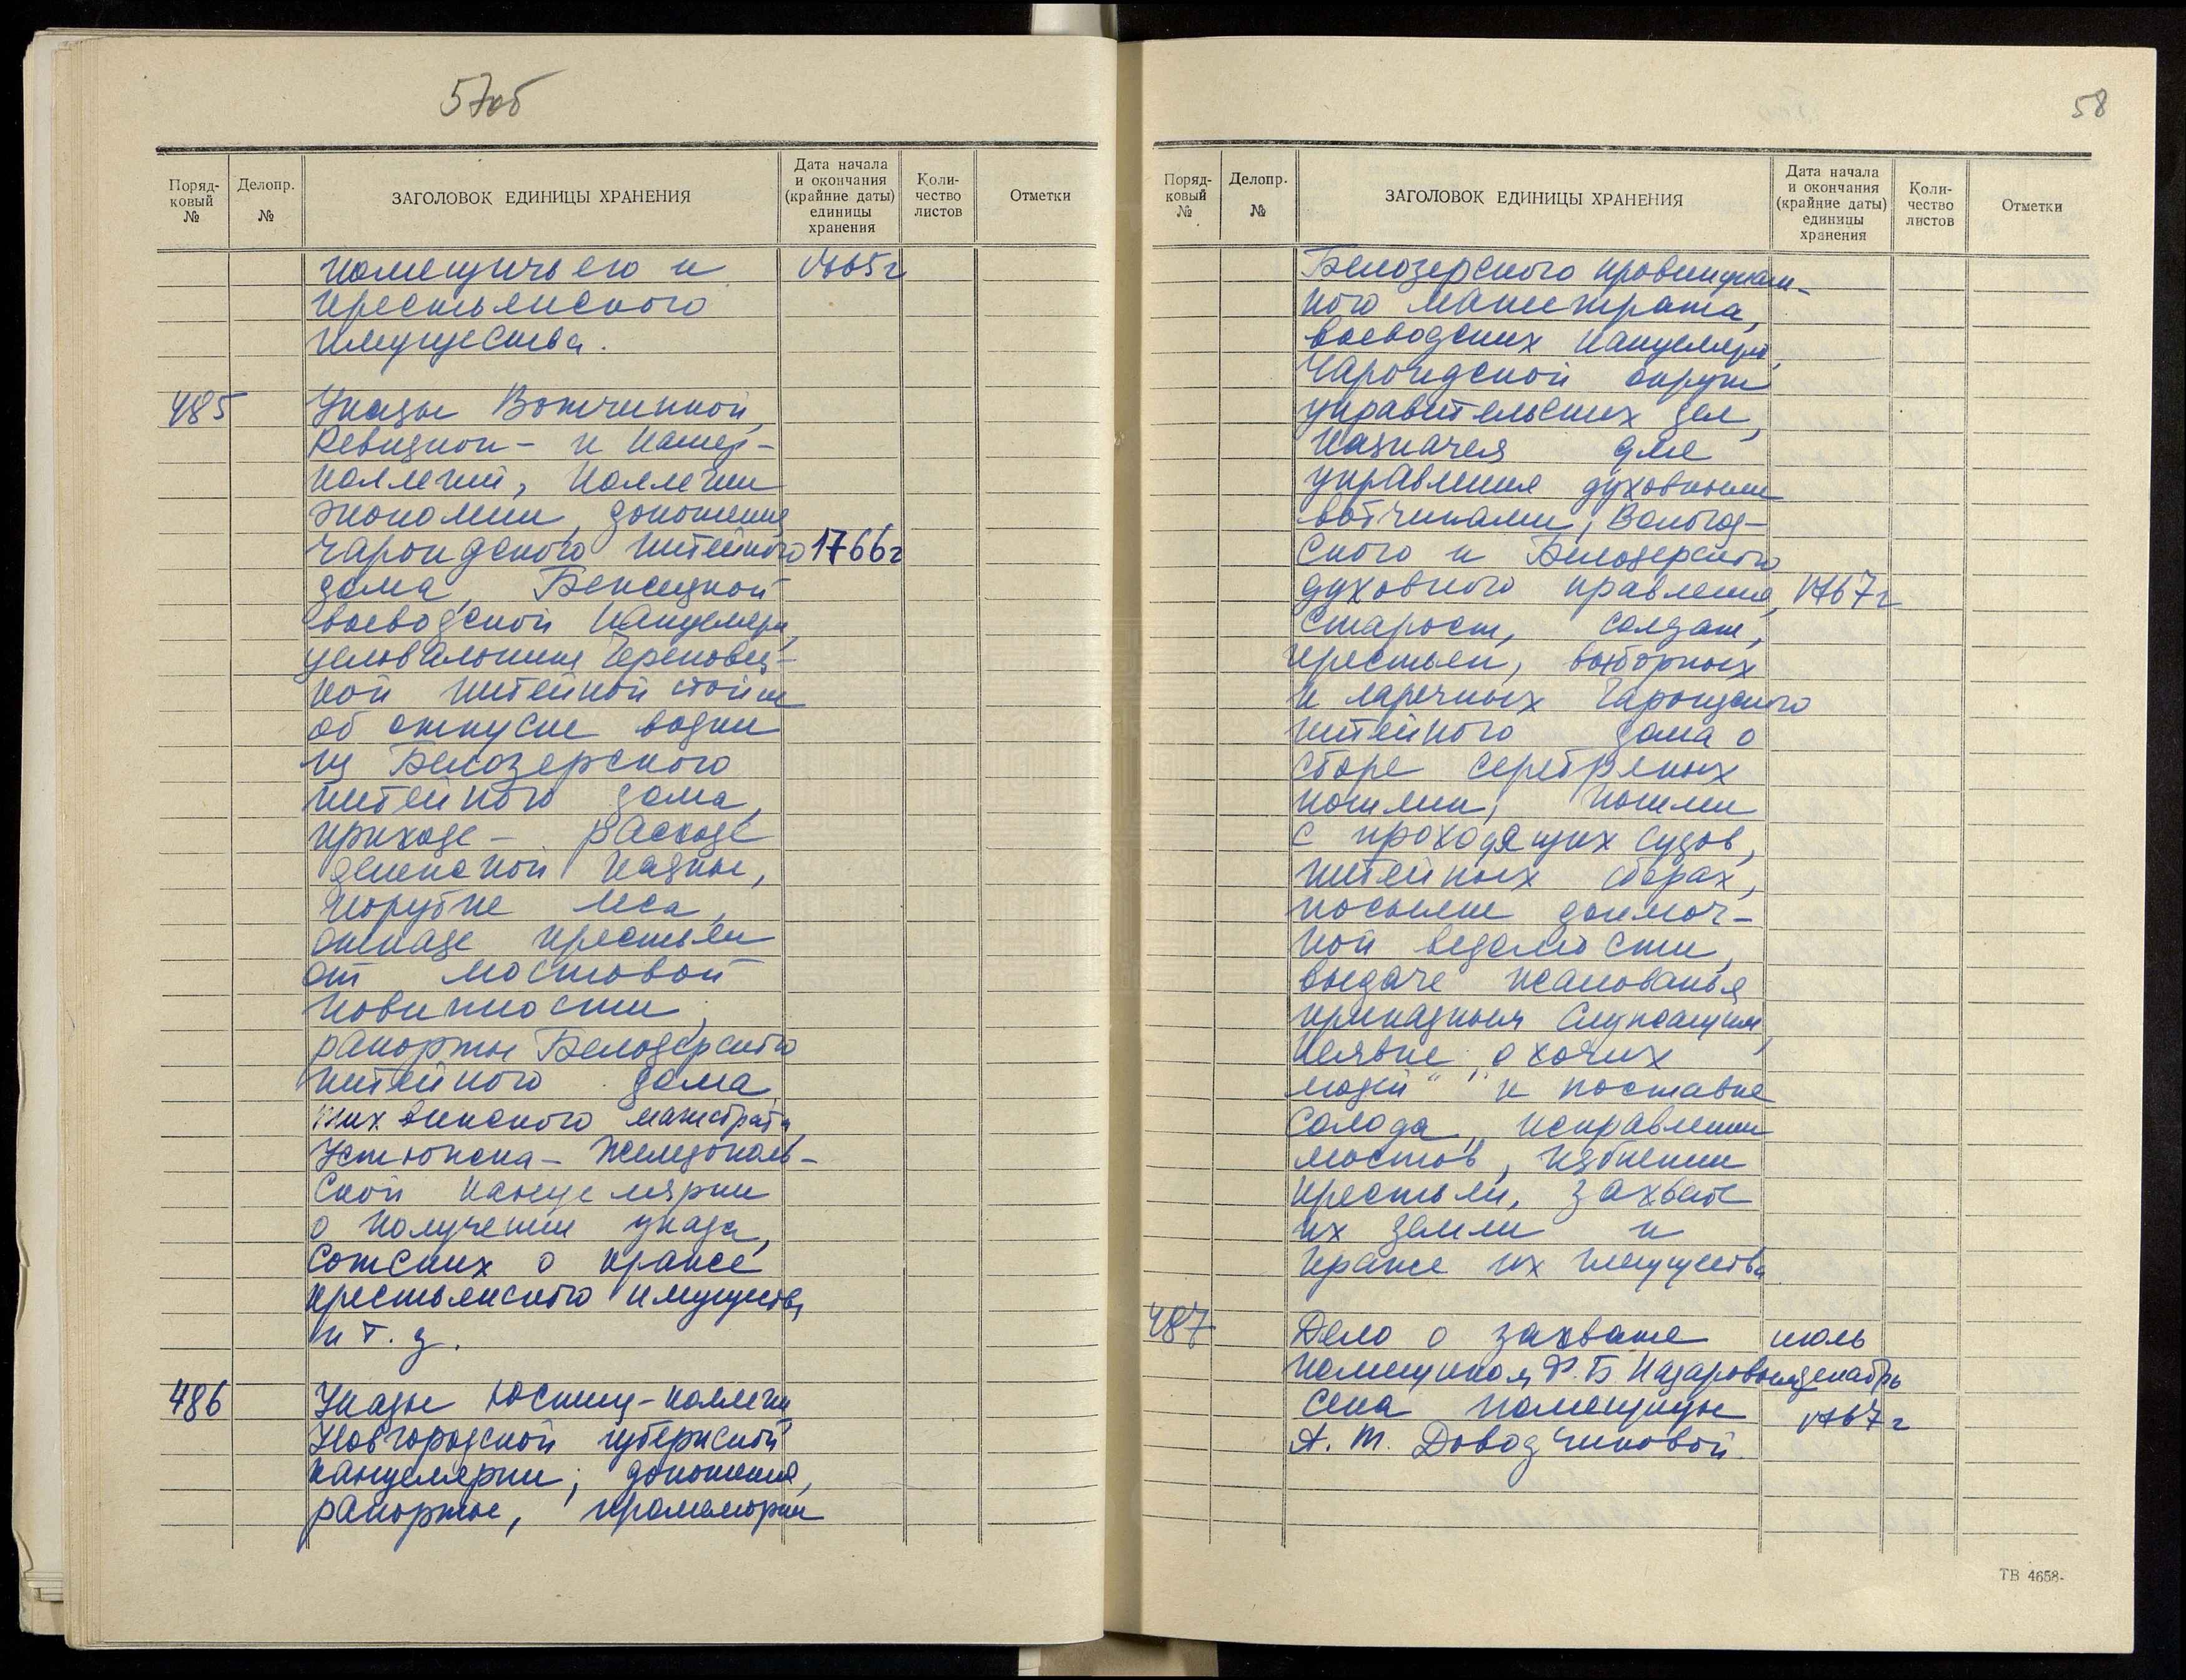 57об
Поряд-
ковый
№
Делопр.
№
ЗАГОЛОВОК ЕДИНИЦЫ ХРАНЕНИЯ
Дата начала
и окончания
(крайние даты)
единицы
хранения
Коли-
чество
листов
Отметки
помещичьего и 1765г
крестьянского
имущества.
485 Указы Вотчинной,
Ревизион- и Камер-
коллегий, Коллегии
экономии, доношения
чарондского питейного 1766г
дома, Бежецкой
воеводской канцеляри,
целовальника Череповец-
кой питейной стойки
об отпуске водки
из Белозерского
питейного дома,
приходе - расходе
денежной казны,
порубке леса,
отказе крестьян
от мостовой
повинности;
рапорты Белозерского
питейного дома
тихвинского магистрата,
Устюжна-Железополь-
ской канцелярии
о получении указа,
сотских о краже
крестьянского имущества
и т. д.
486 Указы Юстиц-коллегии
Новгородской губернской
канцелярии; доношения,
рапорты, промемории
58
Поряд-
ковый
№
Делопр.
№
ЗАГОЛОВОК ЕДИНИЦЫ ХРАНЕНИЯ
Дата начала
и окончания
(крайние даты)
единицы
хранения
Коли-
чество
листов
Отметки
Белозерского провинциаль-
ного магистрата,
воеводских канцелярий,
Чарондской округи
управительских дел,
казначея для
управления духовными
вотчинами, Вологод-
ского и Белозерского
духовного правления, 1767г
старост, солдат,
крестьян, выборных
и ларечных Чарондского
питейного дома о
сборе серебряных
пошлин, пошлин
с проходящих судов,
питейных сборах,
посылке доимоч-
ной ведомости,
выдаче жалованья
приказным служащим,
неявке „охочих
людей" к поставке
солода, исправлении
мостов, избиении
крестьян, захвате
их земли и
краже их имущества
487 Дело о захвате июль
помещиком Ф. Б. Назаровым декабрь
сена помещицы 1767г
А. Т. Доводчиковой.
ТВ 4658-